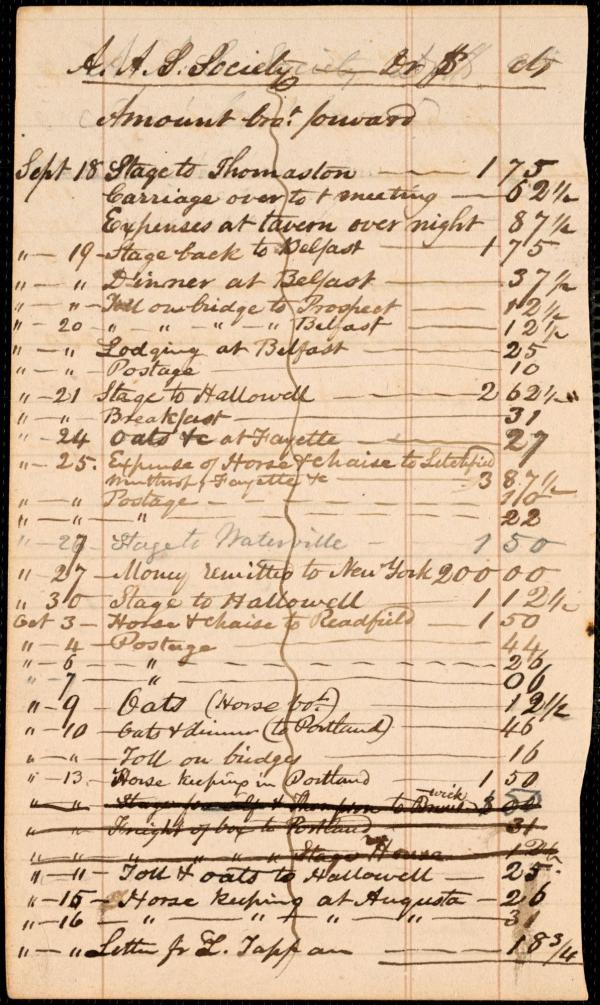 A. A. S. Society Dr $ cts
Amount bro.t forward
Sept 18 Stage to Thomaston — 1 75
Carriage over to t meeting — 62 1/2
Expenses at tavern over night 87 1/2
" — 19 — Stage back to Belfast — 1 75
" — " Dinner at Belfast — 37 1/2
" — " — Toll on bridge to Prospect — 12 1/2
" — 20 — " — " — " — " Belfast — 12 1/2
" — " Lodging at Belfast — 25
" — " — Postage — 10
" — 21 Stage to Hallowell — 2 62 1/2
" — " Breakfast — 31
" — 24 Oats &c at Fayette — 27
" — 25. Expense of Horse & chaise to Litchfield
Winthrop, Fayette &c — 3 87 1/2
" — " Postage — 10
" — " — " — 22
" — 27 Stage to Waterville — 1 50
" — 27 — Money remitted to New York 200 00
" 30 — Stage to Hallowell — 1 12 1/2
Oct 3 — Horse & chaise to Readfield — 1 50
" — 4 — Postage — 44
" — 6 — " — 26
" — 7 — " — 06
" — 9 — Oats (Horse bo.t) — 12 1/2
" — 10 — Oats & dinner (to Portland) — 46
" — " — Toll on bridges — 16
" — 13 — Horse keeping in Portland — 1 50
" — " — Stage for self & Thompson to wick $
" — " — Freight of box to Portland — 31
" — " — " — " — " — " Stage House —
" — 11 — Toll & oats to Hallowell — 25
" — 15 — Horse keeping at Augusta — 26
" — 16 — " — " — " — " — 31
" — " — Letter fr L. Tappan — 18 3/4